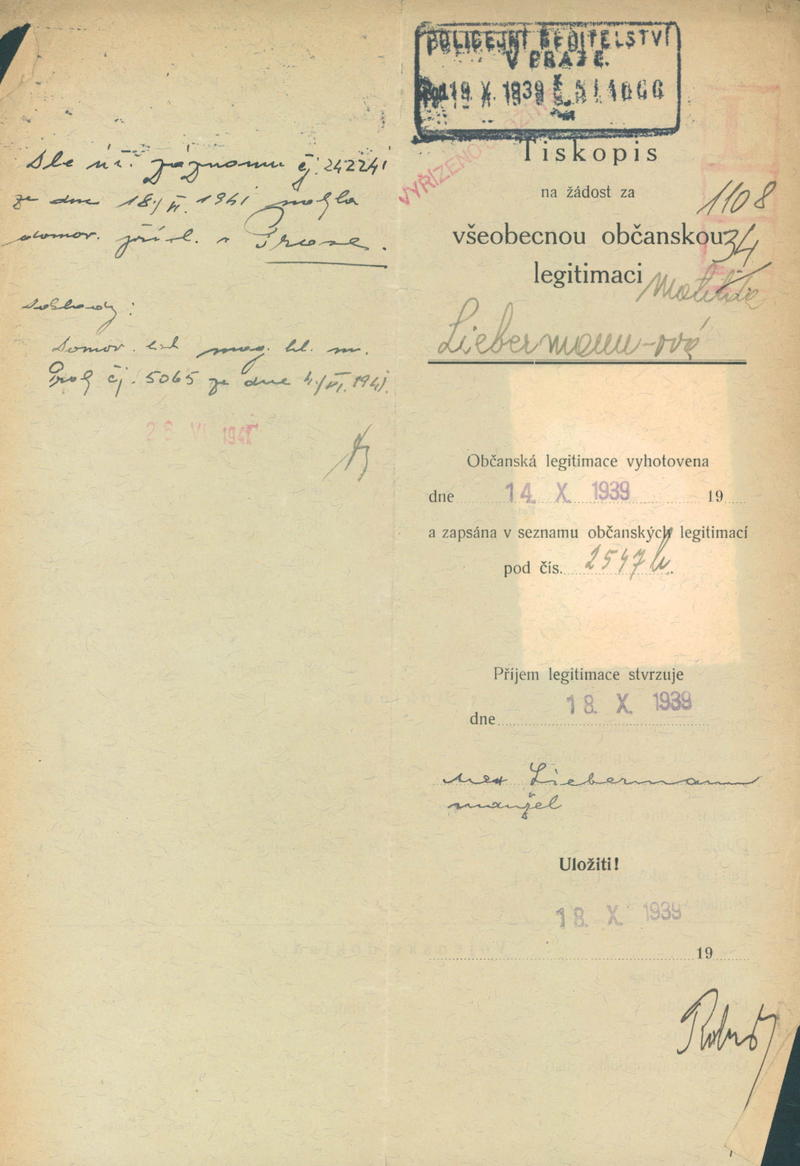 Dle úř. záznamu čj. 242241
ze dne 18/VI. 1941 mohla
domov. přísl. v Praze.
Doklady:
Domov. list mag. hl. m.
čj. 5065 ze dne 4/VI. 1941.
28 VI 1941
POLICEJNÍ ŘEDITELSTVÍ
V PRAZE.
19 X. 1939
VYŘÍZENO
Tiskopis
na žádost za
1108
všeobecnou občanskou
34
legitimaci
Liebermann-ová
Občanská legitimace vyhotovena
dne 14. X. 1939 19
a zapsána v seznamu občanských legitimací
pod čís. 2547
Příjem legitimace stvrzuje
dne 18. X. 1939
Liebermann
manžel
Uložiti!
18. X. 1939
19